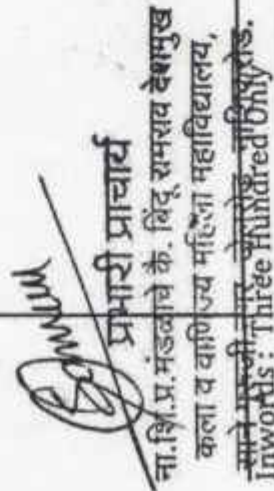 प्रभारी प्राचार्य
ना.शि.प्र.मंडळाचे कै. बिंदू रामराव देशमुख
कला व वाणिज्य महिला महाविद्यालय,
Inwords : Three Hundred Only.